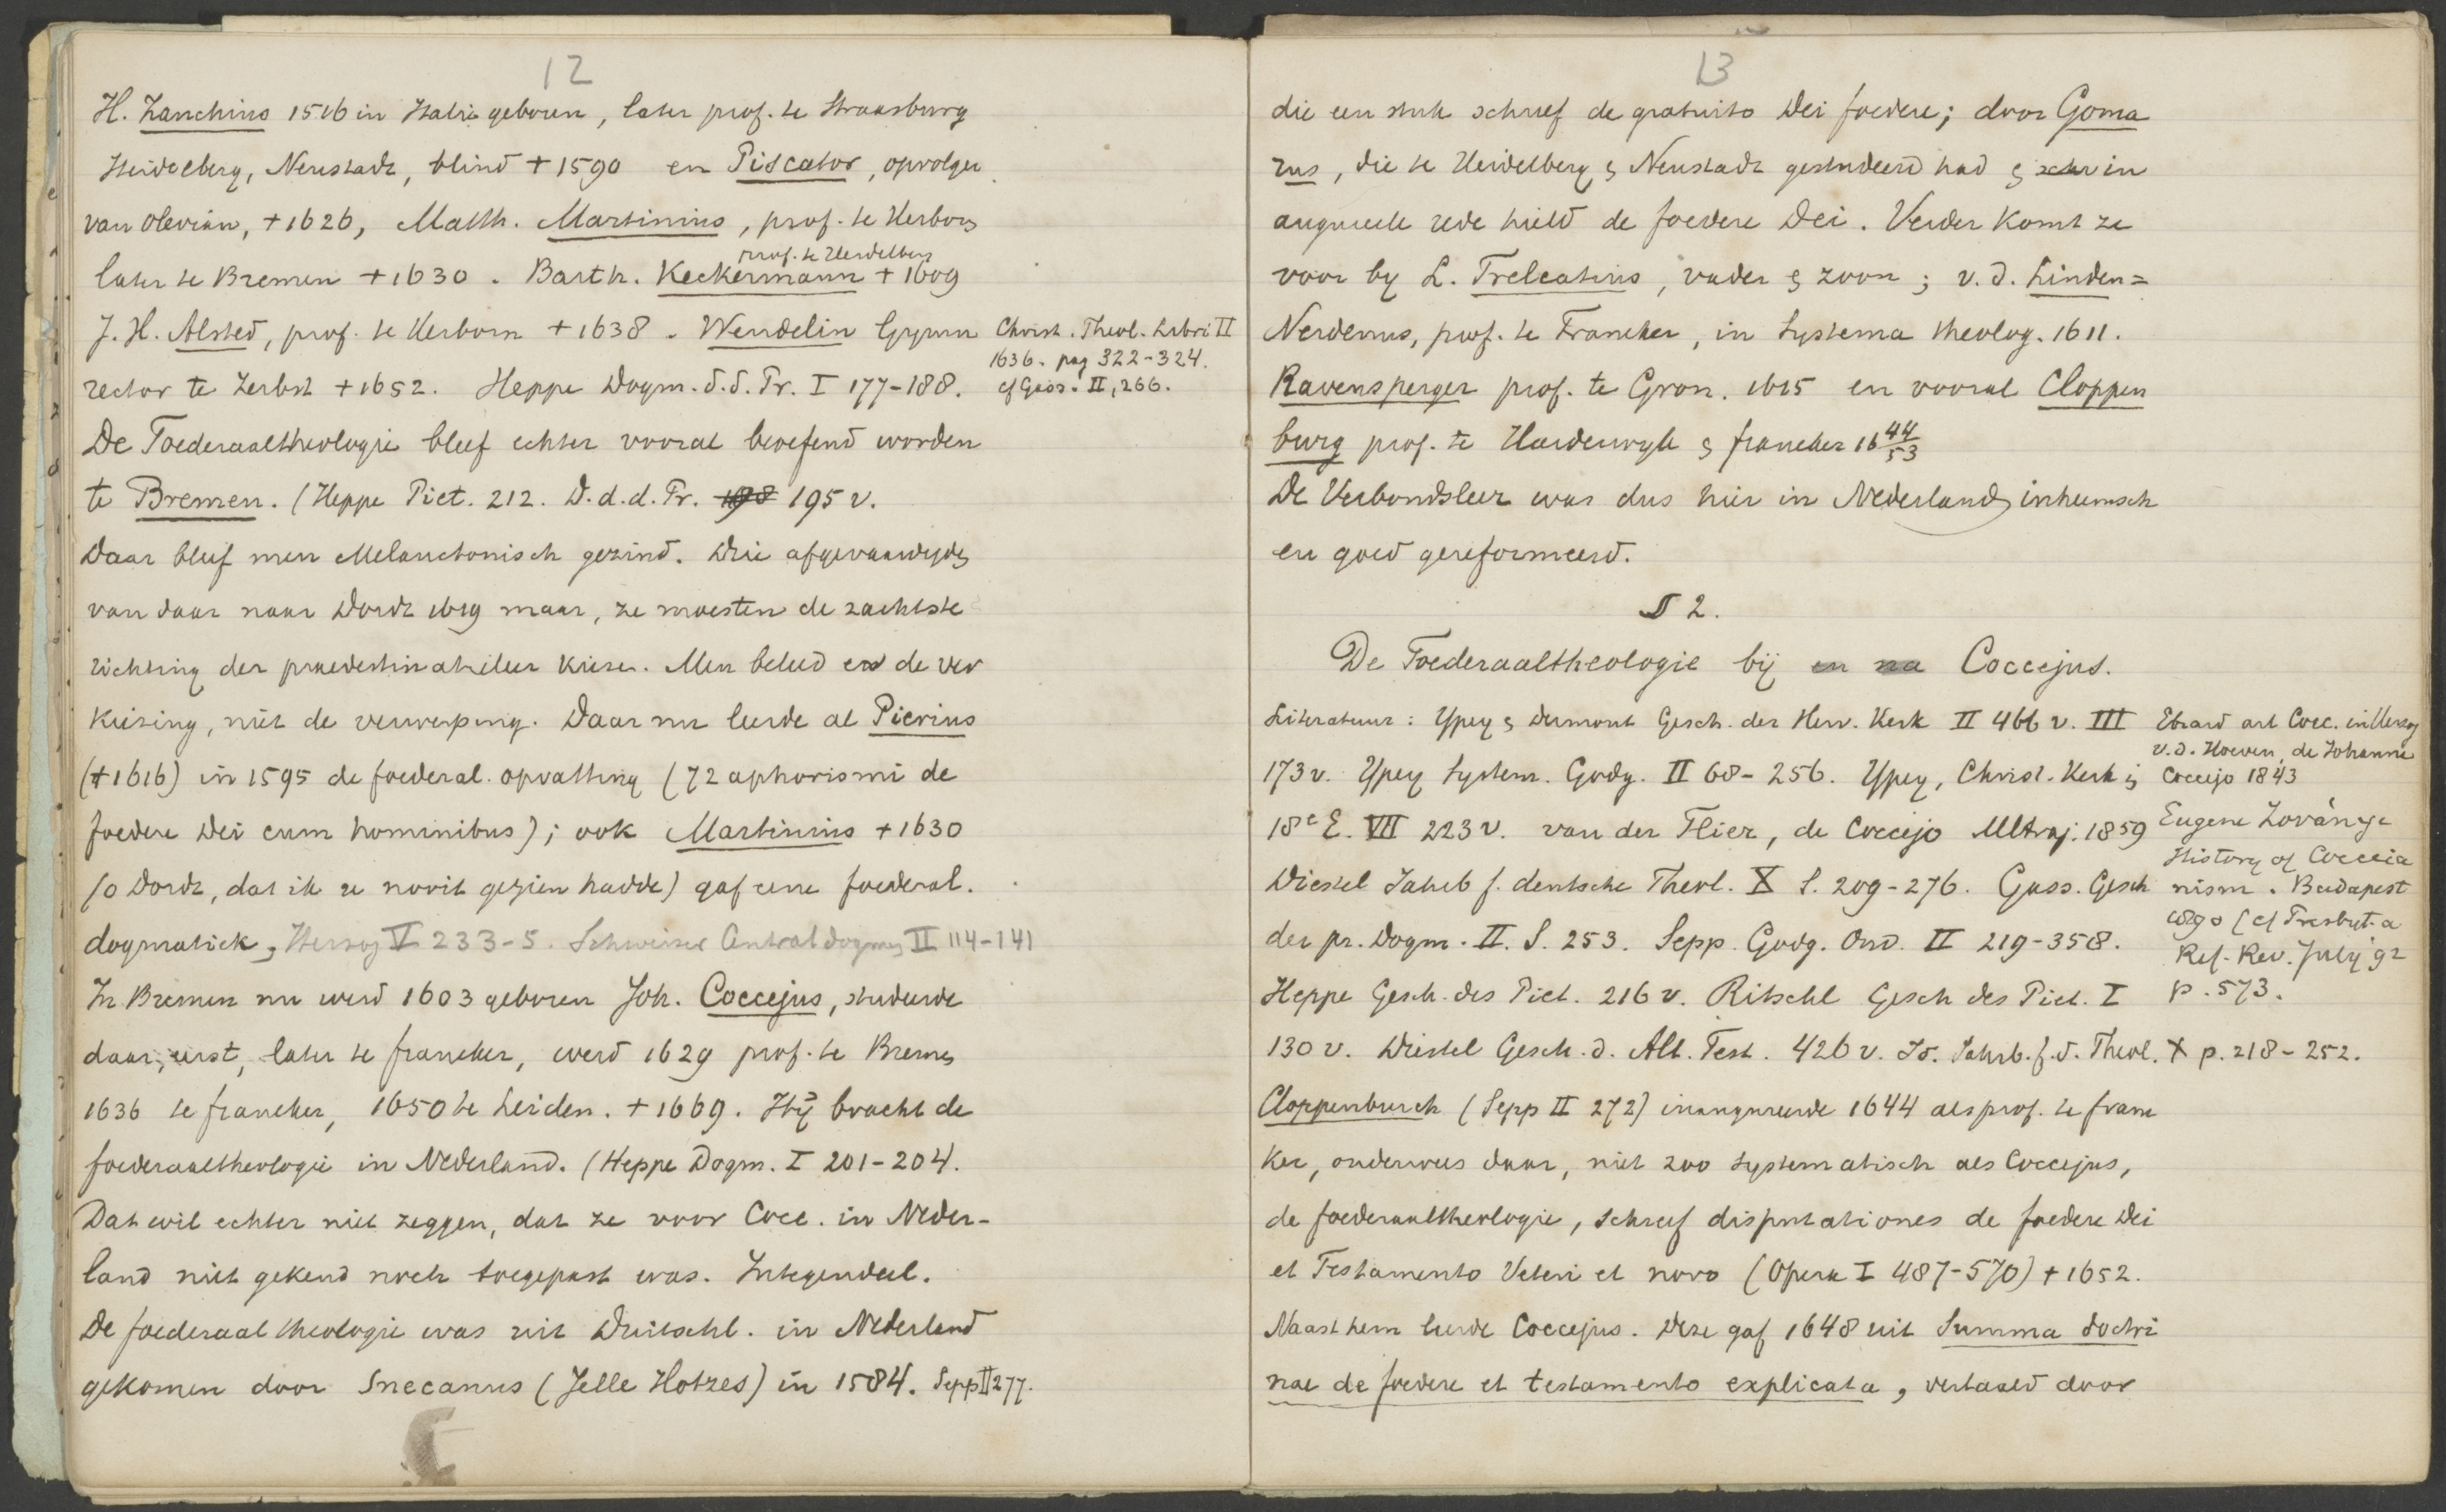 12
H. Zanchius 1516 in Italië geboren, later prof. te Straasburg
Heidelberg, Neustadt, blind + 1590 en Piscator, opvolger
van Olevian, + 1626, Matth. Martinius, prof. te Herborn
prof. te Heidelberg
later te Bremen + 1630. Barth. Keckermann + 1609
J. H. Alsted, prof. te Herborn + 1638. Wendelin Gymn
Christ. Theol. Libri II
1636. pag 322-324.
cf Gass. II, 266.
rector te Zerbst + 1652. Heppe Dogm. d. d. Pr. I 177-188.
De Foederaaltheologie bleef echter vooral beoefend worden
te Bremen. (Heppe Piet. 212. D. d. d. Pr. 198 195 v.
Daar bleef men Melanctonisch gezind. Drie afgevaardigden
van daar naar Dordt 1619 maar, ze moesten de zachtste
richting der praedestinatieleer kiezen. Men beleed en de ver
kiezing, niet de verwerping. Daar nu leerde al Pierius
(+ 1616) in 1595 de foederal. opvatting (72 aphorismi de
foedere Dei cum hominibus); ook Martinius + 1630
(o Dordt, dat ik u nooit gezien hadde) gaf eene foederal.
dogmatiek, Herzog V 233-5. Schweizer Centraldogmen II 114-141
In Bremen nu werd 1603 geboren Joh. Coccejus, studeerde
daar, eerst, later te franeker, werd 1629 prof. te Bremen
1636 te franeker, 1650 te Leiden. + 1669. Hij bracht de
foederaaltheologie in Nederland. (Heppe Dogm. I 201-204.
Dat wil echter niet zeggen, dat ze voor Cocc. in Neder-
land niet gekend noch toegepast was. Integendeel.
De foederaaltheologie was uit Duitschl. in Nederland
gekomen door Snecanus (Jelle Hotzes) in 1584. Sepp II 277.
13
die een stuk schreef de gratuito Dei foedere; door Goma
rus, die te Heidelberg & Neustadt gestudeerd had & in
augureele rede hield de foedere Dei. Verder komt ze
voor by L. Trelcatius, vader & zoon; v. d. Linden=
Nerdenus, prof. te Franeker, in Systema theolog. 1611.
Ravensperger prof. te Gron. 1615 en vooral Cloppen
burg prof. te Harderwyk & franeker 16 44/53
De Verbondsleer was dus hier in Nederland inheemsch
en goed gereformeerd.
§ 2.
De Foederaaltheologie bij en na Coccejus.
Literatuur: Ypey & Dermout Gesch. der Herv. Kerk II 466 v. III
173 v. Ypey System. Godg. II 68-256. Ypey, Christ. Kerk in
18e E. VII 223 v. van der Flier, de Coccejo Ultraj. 1859
Diestel Jahrb f. deutsche Theol. X S. 209-276. Gass. Gesch
der pr. Dogm. II. S. 253. Sepp. Godg. Ond. II 219-358.
Heppe Gesch. des Piet. 216 v. Ritschl Gesch des Piet. I
130 v. Diestel Gesch. d. Alt. Test. 426 v. Id. Jahrb. f. d. Theol. X p. 218-252.
Ebrard art Cocc. in Herzog
v. d. Hoeven, de Johanne
Coccejo 1843
Eugene Zoványi
History of Cocceia
nism. Budapest
1890 (cf Presbyt. a
Ref. Rev. July '92
p. 573.
Cloppenburch (Sepp II 272) inaugureerde 1644 als prof. te frane
ker, onderwees daar, niet zoo systematisch als Coccejus,
de foederaaltheologie, schreef disputationes de foedere Dei
et Testamento Veteri et novo (Opera I 487-570) + 1652.
Naast hem leerde Coccejus. Deze gaf 1648 uit Summa doctri
nae de foedere et testamento explicata, vertaald door